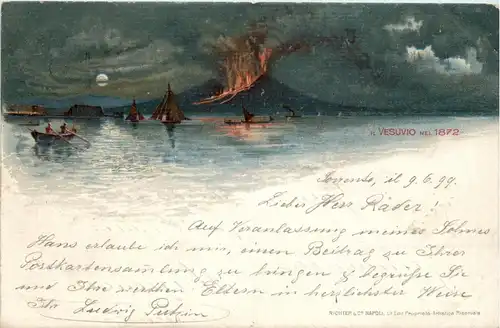 IL VESUVIO NEL 1872
Sorrento, il 9. 6. 99.
Lieber Herr Räder!
Auf Veranlassung meines Sohnes
Hans erlaube ich mir, einen Beitrag zu Ihrer
Postkartensammlung zu bringen & begrüße Sie
und Ihre werthen Eltern in herzlichster Weise
Ihr Ludwig
RICHTER & Co NAPOLI,